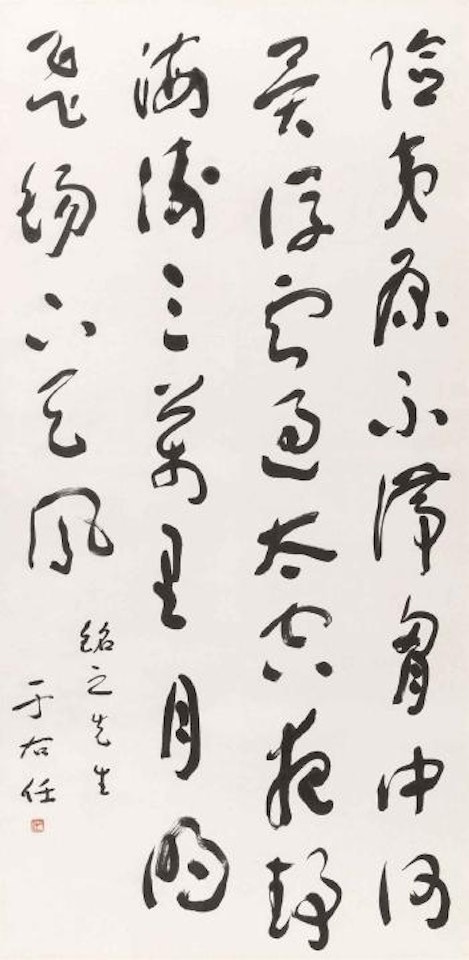 險夷原不滯胷中何
異浮雲過太空夜靜
海濤三萬里月明
飛錫下天風
銘之先生
于右任